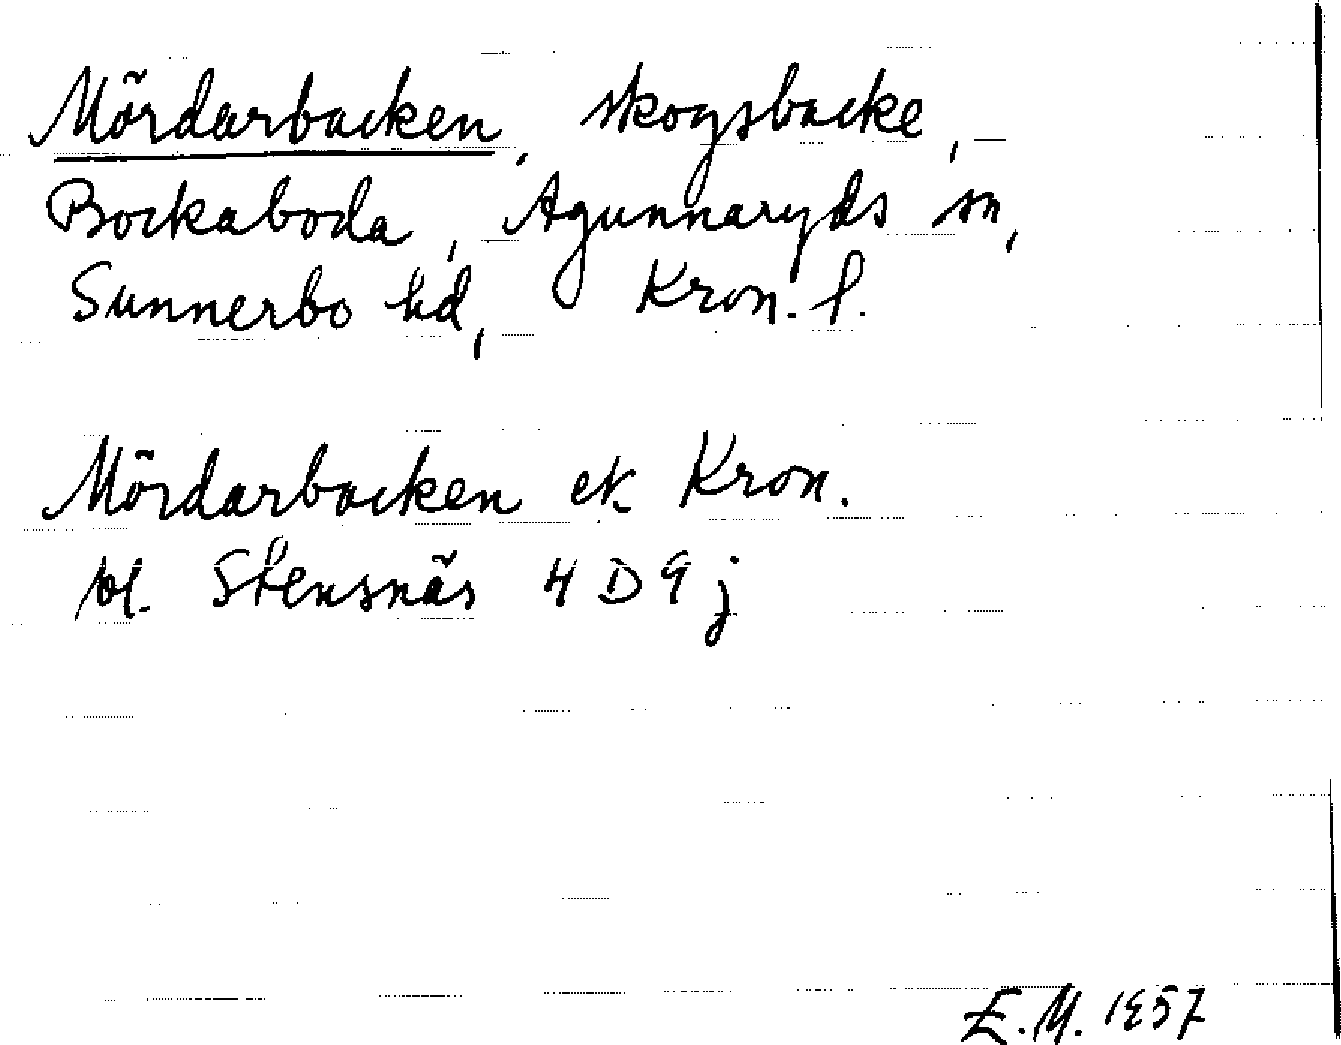 Mördarbacken, skogsbacke,
Bockaboda, Agunnaryds sn,
Sunnerbo hd, Kron. l.
Mördarbacken ek Kron.
bl. Stensnäs 4D9j
E.M. 1957